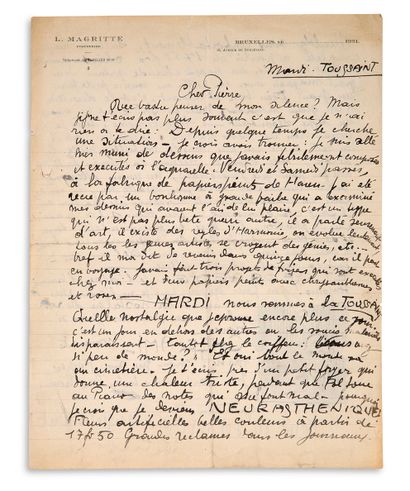 L. MAGRITTE
BRUXELLES, LE 1921.
Mardi. TOUSSAINT
Cher Pierre
Que vas-tu penser de mon silence? Mais
si je n'écris pas plus souvent c'est que je n'ai
rien à te dire. Depuis quelque temps je cherche
une situation - je crois avoir trouvé: je suis allé
muni de dessins que j'avais composés
et exécutés à l'aquarelle. Vendredi et Samedi passés
à la fabrique de papiers peints de Haren. J'ai été
reçu par un bonhomme à grande barbe qui a examiné
mes dessins qui avaient l'air de lui plaire, c'est un type
qui n'est pas plus bête qu'un autre, il a parlé
d'art, il existe des règles d'Harmonie, on évolue
tous les jeunes artistes se croyent des génies, etc.
bref il m'a dit de revenir dans quinze jours, car il part
en voyage. J'avais fait trois projets de frises qui sont
chez moi - et d'un papier peint avec chrysanthèmes
et roses — MARDI nous sommes à la TOUSSAINT
Quelle nostalgie que j'éprouve encore plus ce jour
c'est un jour en dehors des autres où les soucis
disparaissent - Tantôt chez le coiffeur:
si peu de monde? Et oui tout le monde va
au cimetière. Je t'écris près d'un petit foyer qui
donne une chaleur triste, pendant que Pol joue
au Piano des notes qui me font mal - pourquoi
je crois que je deviens NEURASTHENIQUE
Fleurs artificielles belles couleurs à partir de
17 f 50 Grandes reclames dans les journaux.